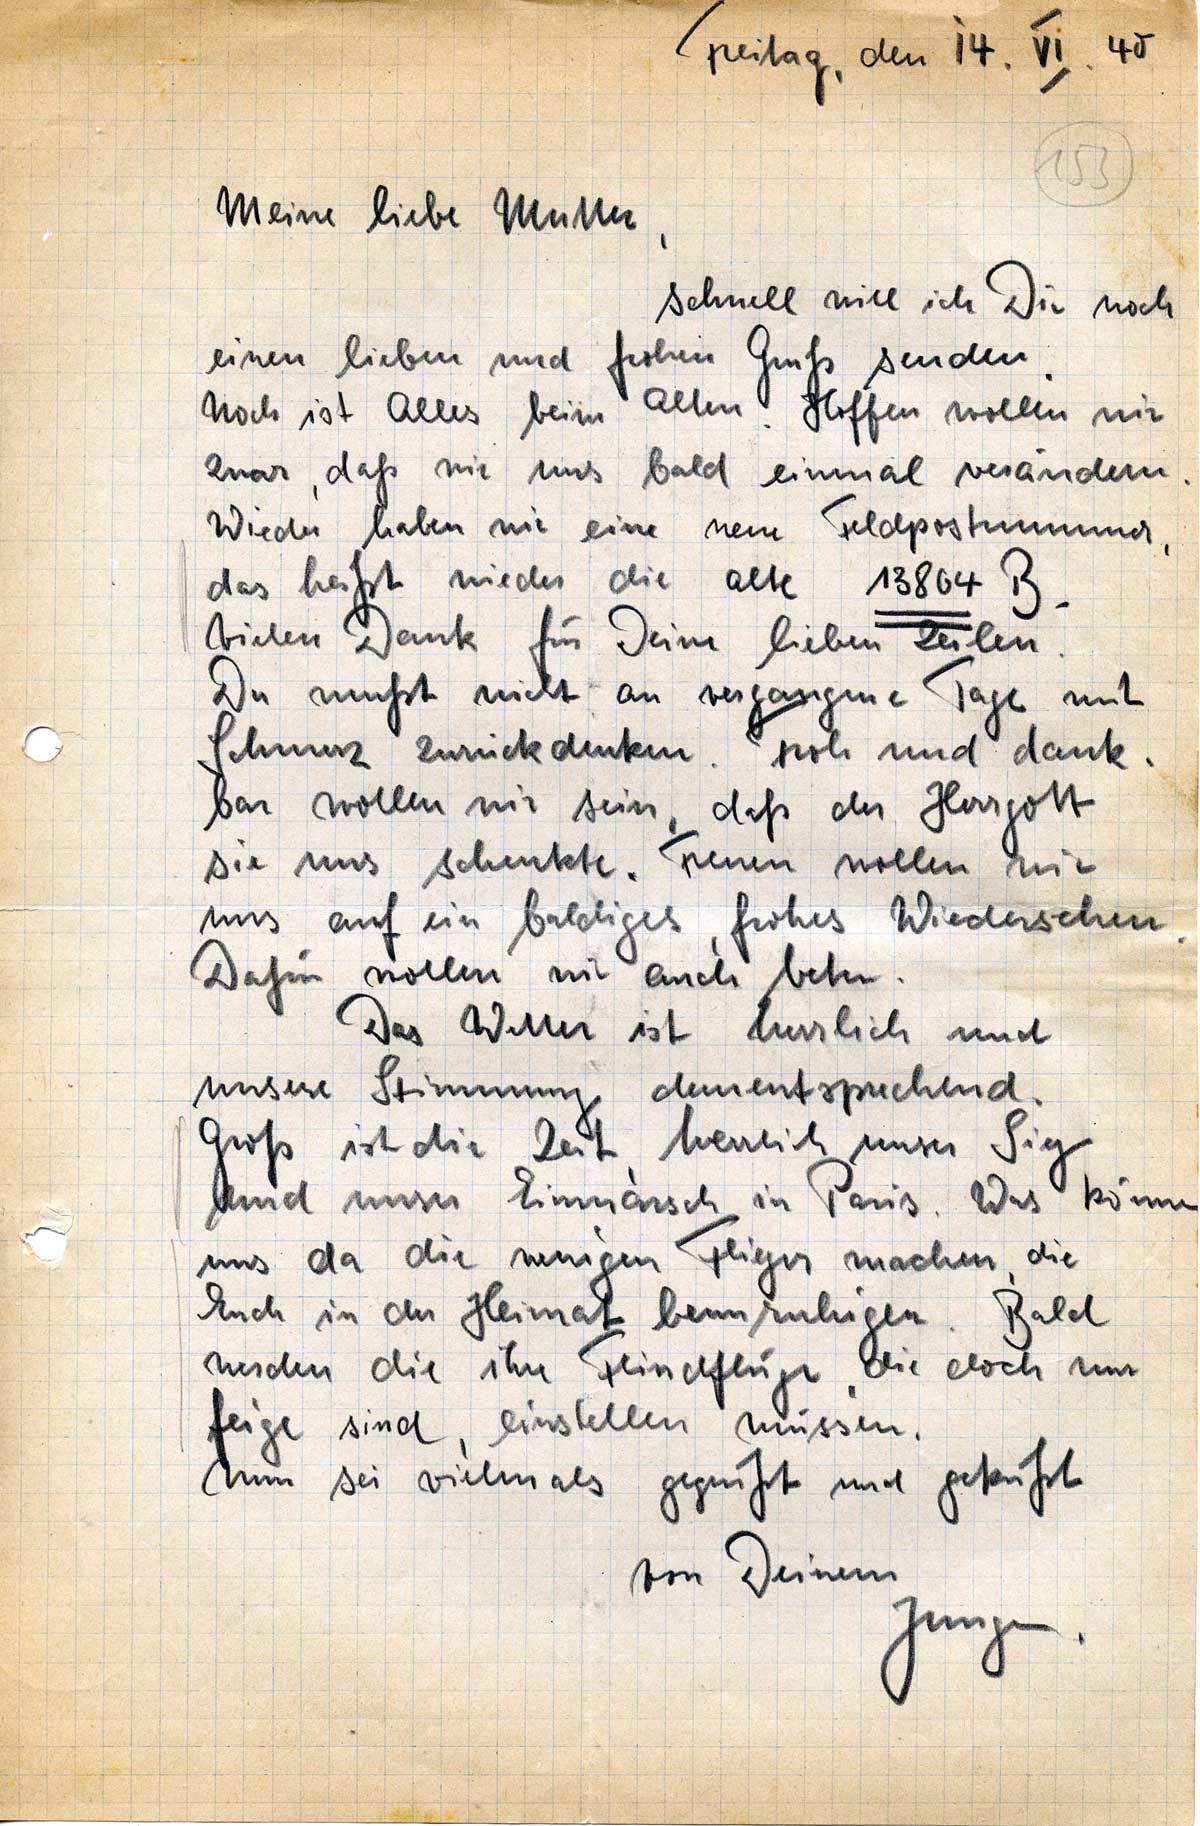 Freitag, den 14. VI. 40
153
Meine liebe Mutter,
schnell will ich Dir noch
einen lieben und frohen Gruß senden.
Noch ist Alles beim Alten. Hoffen wollen wir
zwar, daß wir uns bald einmal verändern.
Wieder haben wir eine neue Feldpostnummer,
das heißt wieder die alte 13804 B.
Vielen Dank für Deine lieben Zeilen.
Du mußt nicht an vergangene Tage mit
Schmerz zurückdenken. Froh und dank-
bar wollen wir sein, daß der Herrgott
sie uns schenkte. Freuen wollen wir
uns auf ein baldiges, frohes Wiedersehen.
Dafür wollen wir auch beten.
Das Wetter ist herrlich und
unsere Stimmung dementsprechend.
Groß ist die Zeit, herrlich unser Sieg
und unser Einmarsch in Paris. Was können
uns da die wenigen Flieger machen, die
Euch in der Heimat beunruhigen. Bald
werden die ihre Feindflüge, die doch nur
feige sind, einstellen müssen.
Nun sei vielmals gegrüßt und geküßt
von Deinem
Jungen.